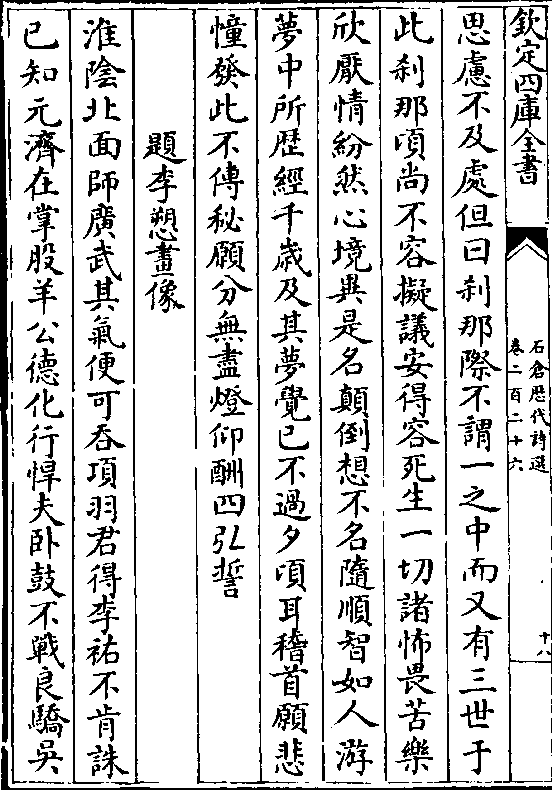 欽定四庫全書
石倉歴代詩選
卷二百二十六
十八
思慮不及處但曰刹那際不謂一之中而又有三世于
此刹那頃尚不容擬議安得容死生一切諸怖畏苦樂
欣厭情紛然心境異是名顛倒想不名隨順智如人游
夢中所歴經千歳及其夢覺已不過夕頃耳稽首願悲
憧發此不傳秘願分無盡燈仰酬四弘誓
題李愬畫像
淮陰北面師廣武其氣便可吞項羽君得李祐不肯誅
已知元濟在掌股羊公德化行悍夫卧鼓不戰良驕吳